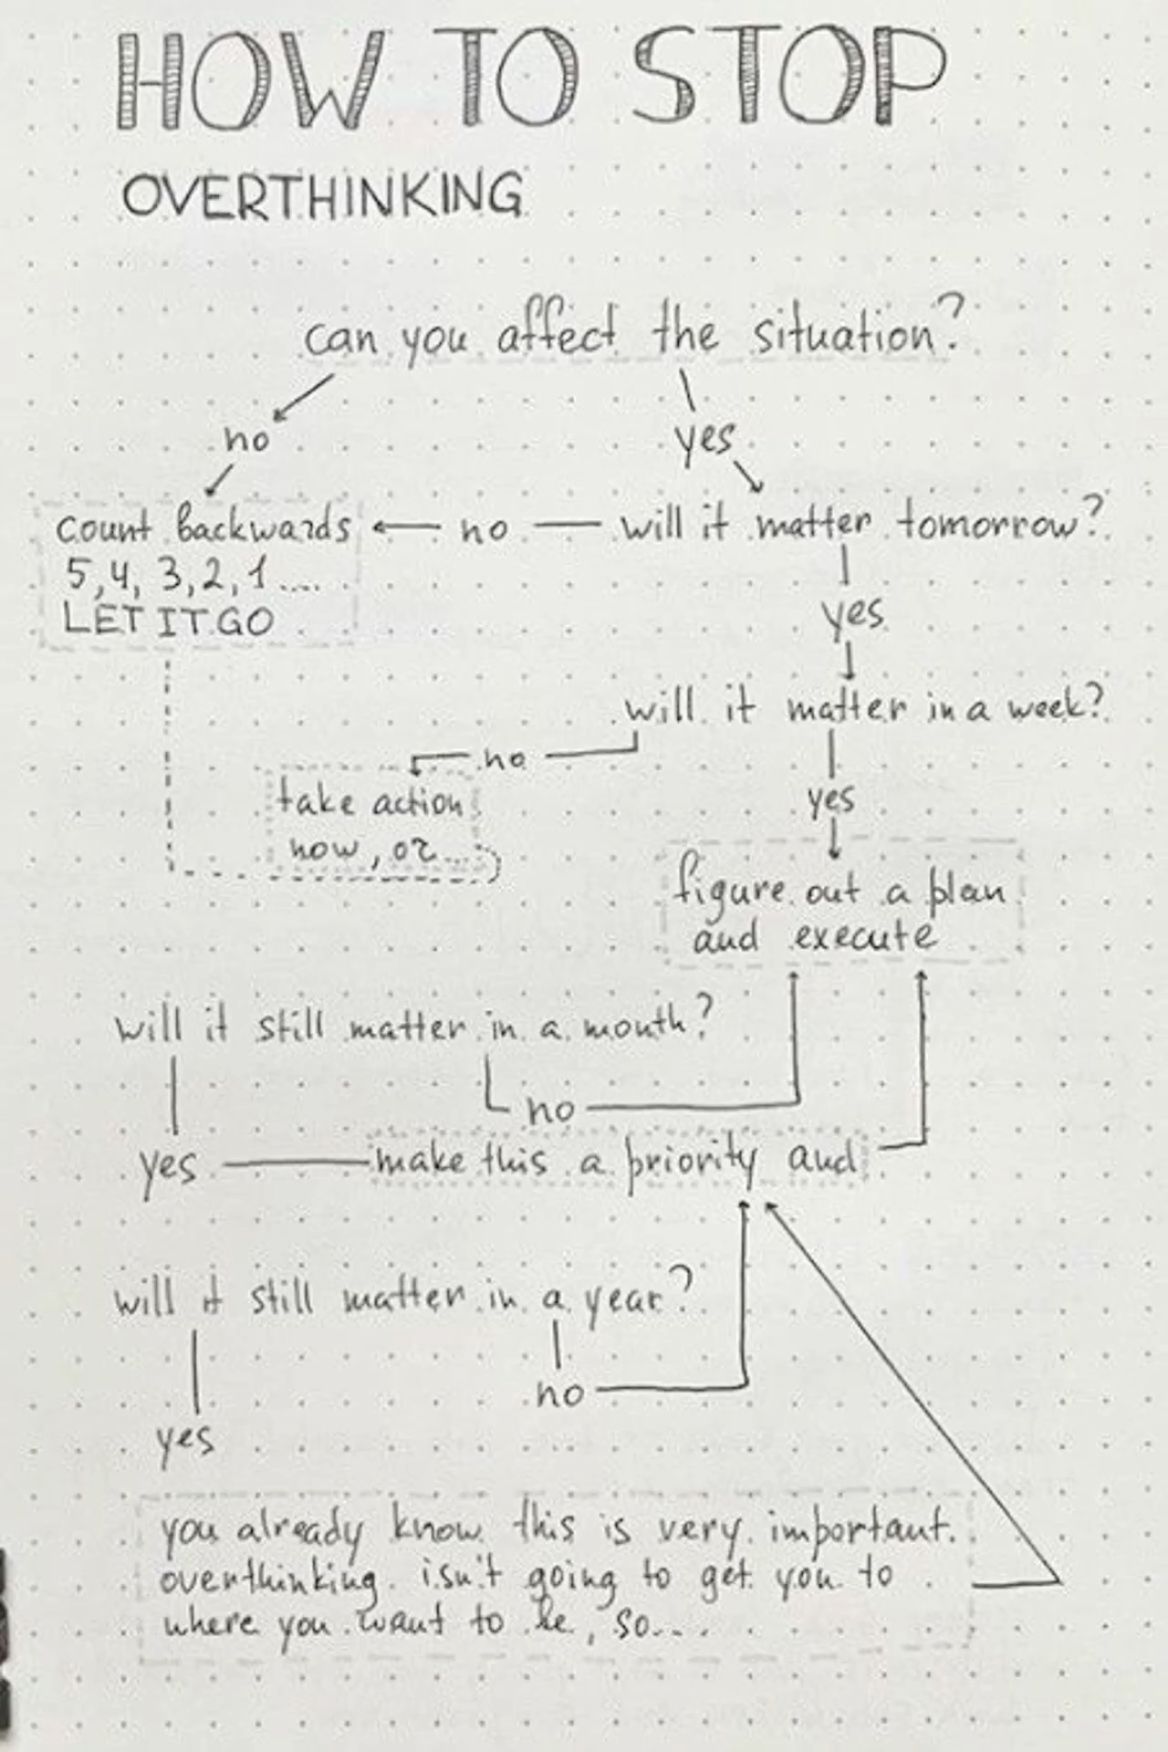 HOW TO STOP
OVERTHINKING
can you affect the situation?
no
yes
count backwards
5, 4, 3, 2, 1....
LET IT GO
no
will it matter tomorrow?
yes
will it matter in a week?
no
take action
now, or...
yes
figure out a plan
and execute
will it still matter in a month?
no
yes
make this a priority and
will it still matter in a year?
no
yes
you already know this is very important.
overthinking isn't going to get you to
where you want to be, so...